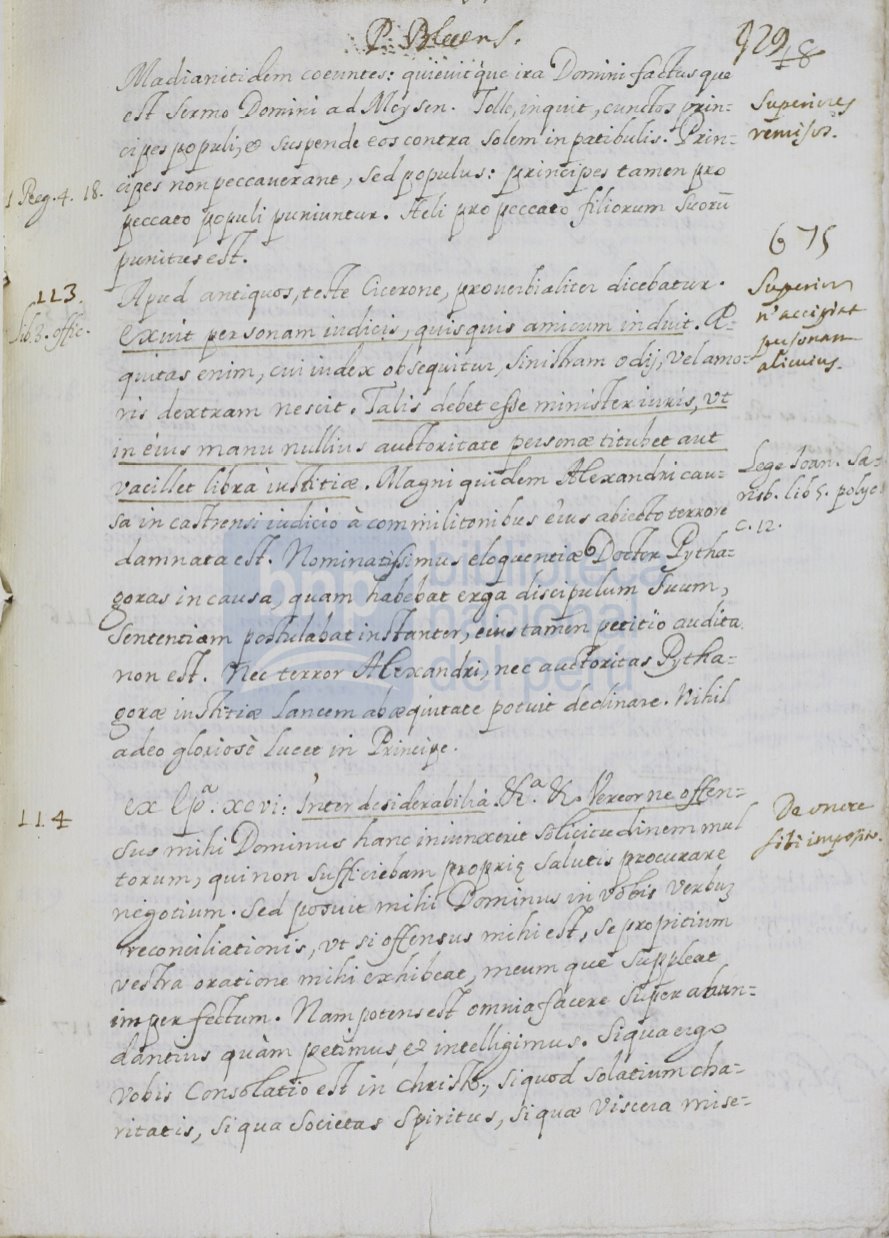 P. Blaens.
929
48
Madianitidem coeuntes: quieuitque ira Domini factusque
est Sermo Domini ad Moysen. Tolle, inquit, cunctos prin-
cipes populi, & suspende eos contra solem in patibulis. Prin-
cipes non peccauerant, sed populus: principes tamen pro
peccato populi puniuntur. Heli pro peccato filiorum suorū
punitus est.
Superiores
remissi.
1 Reg. 4. 18.
675
113.
Lib. 3. offic.
Apud antiquos, teste Cicerone, prouerbialiter dicebatur.
Exuit personam iudicis, quisquis amicum induit. Æ-
quitas enim, cui iudex obsequitur, sinistram odij, vel amo-
ris dextram nescit. Talis debet esse minister iuris, vt
in eius manu nullius auctoritate personæ titubet aut
vacillet libra iustitiæ. Magni quidem Alexandri cau-
sa in castrensi iudicio à commilitonibus eius abiecto terrore
damnata est. Nominatissimus eloquentiæ Doctor Pytha-
goras in causa, quam habebat erga discipulum suum,
sententiam postulabat instanter, eius tamen petitio audita
non est. Nec terror Alexandri, nec auctoritas Pytha-
goræ iustitiæ lancem ab æquitate potuit declinare. Nihil
adeo gloriosè lucet in Principe.
Superior
n' accipiat
personam
alicuius.
Lege Ioan. Sa-
risb. lib 5. polyc.
c. 12.
114
ex Ep.ª xcvi: Inter desiderabilia &ª. &. Vereor ne offen-
sus mihi Dominus hanc iniunxerit solicitudinem mul
torum, qui non sufficiebam proprię salutis procurare
negotium. Sed posuit mihi Dominus in vobis verbuʒ
reconciliationis, vt si offensus mihi est, se propitium
vestra oratione mihi exhibeat, meumque suppleat
imperfectum. Nam potens est omnia facere superabun-
dantius quàm petimus, & intelligimus. Si qua ergo
vobis Consolatio est in Christo, si quod solatium cha-
ritatis, si qua societas Spiritus, si quæ viscera mise-
De onere
sibi imposito.
bnp biblioteca
nacional
del perú